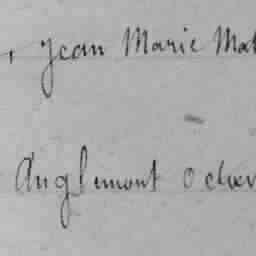 , Jean Marie Mat
Anglemont Octav